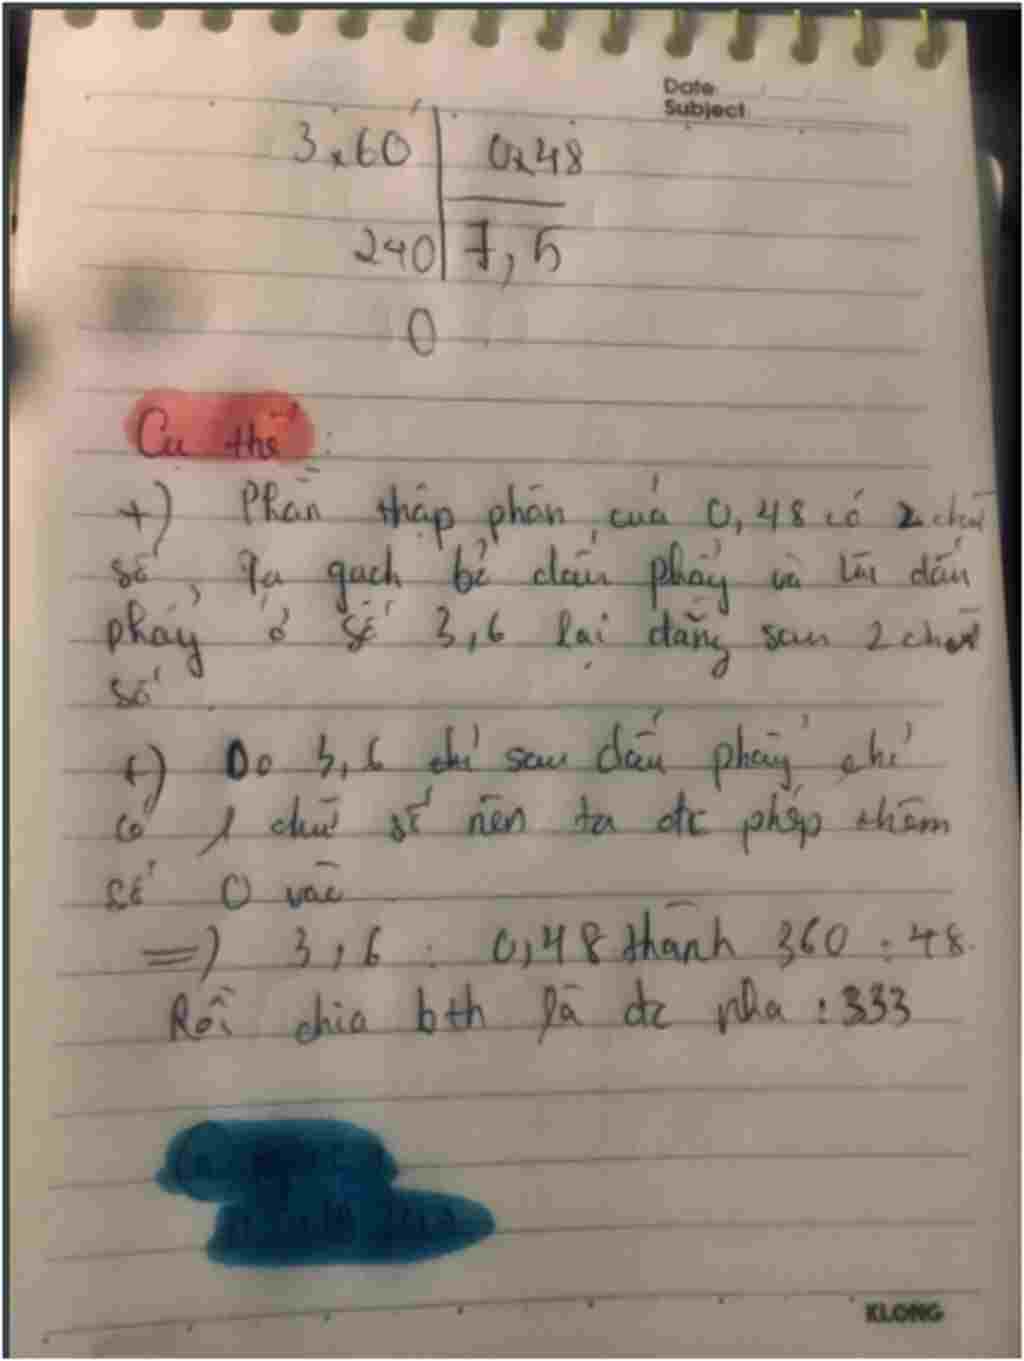 Date
Subject
3,60 | 0,48
240 | 7,5
0
Cụ thể :
+) Phần thập phân của 0,48 có 2 chữ
số, ta gạch bỏ dấu phẩy và dấu
phẩy ở số 3,6 lại đằng sau 2 chữ
số.
+) Do 3,6 chỉ sau dấu phẩy chỉ
có 1 chữ số nên ta đc phép thêm
số 0 vào
=) 3,6 : 0,48 thành 360 : 48.
Rồi chia bth là đc nha :333
KLONG